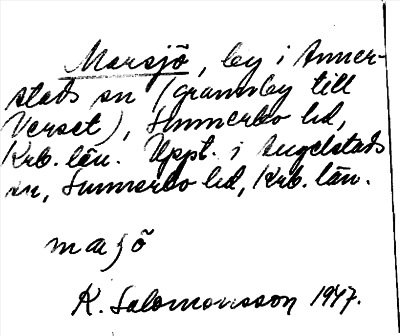 Marsjö, by i Anner-
stads sn (grannby till
Verset), Sunnerbo hd,
Krb. län. Uppt. i Angelstads
sn, Sunnerbo hd, Krb. län.
masö
K. Salomonsson 1947.